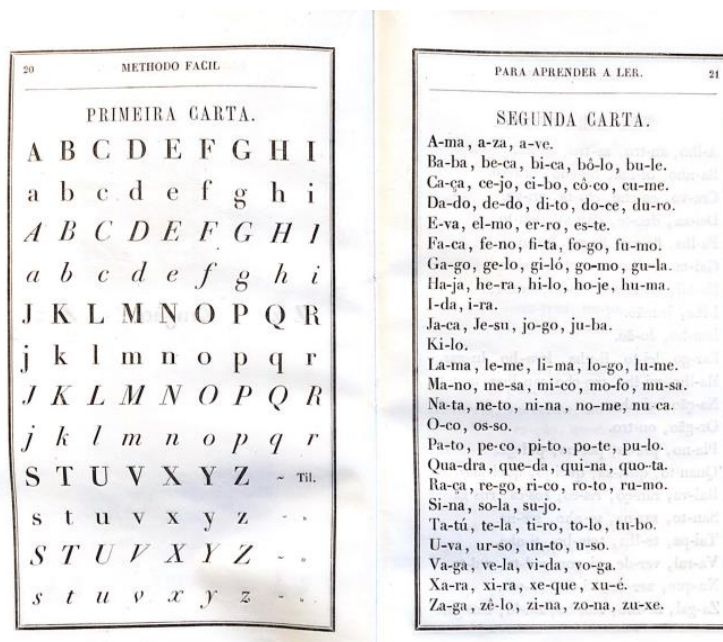 20 METHODO FACIL
PRIMEIRA CARTA.
A B C D E F G H I
a b c d e f g h i
A B C D E F G H I
a b c d e f g h i
J K L M N O P Q R
j k l m n o p q r
J K L M N O P Q R
j k l m n o p q r
S T U V X Y Z ~ Til.
s t u v x y z - .
S T U V X Y Z ~ .
s t u v x y z - .
PARA APRENDER A LER. 21
SEGUNDA CARTA.
A-ma, a-za, a-ve.
Ba-ba, be-ca, bi-ca, bô-lo, bu-le.
Ca-ça, ce-jo, ci-bo, cô-co, cu-me.
Da-do, de-do, di-to, do-ce, du-ro.
E-va, el-mo, er-ro, es-te.
Fa-ca, fe-no, fi-ta, fo-go, fu-mo.
Ga-go, ge-lo, gi-ló, go-mo, gu-la.
Ha-ja, he-ra, hi-lo, ho-je, hu-ma.
I-da, i-ra.
Ja-ca, Je-su, jo-go, ju-ba.
Ki-lo.
La-ma, le-me, li-ma, lo-go, lu-me.
Ma-no, me-sa, mi-co, mo-fo, mu-sa.
Na-ta, ne-to, ni-na, no-me, nu-ca.
O-co, os-so.
Pa-to, pe-co, pi-to, po-te, pu-lo.
Qua-dra, que-da, qui-na, quo-ta.
Ra-ça, re-go, ri-co, ro-to, ru-mo.
Si-na, so-la, su-jo.
Ta-tú, te-la, ti-ro, to-lo, tu-bo.
U-va, ur-so, un-to, u-so.
Va-ga, ve-la, vi-da, vo-ga.
Xa-ra, xi-ra, xe-que, xu-é.
Za-ga, zê-lo, zi-na, zo-na, zu-xe.